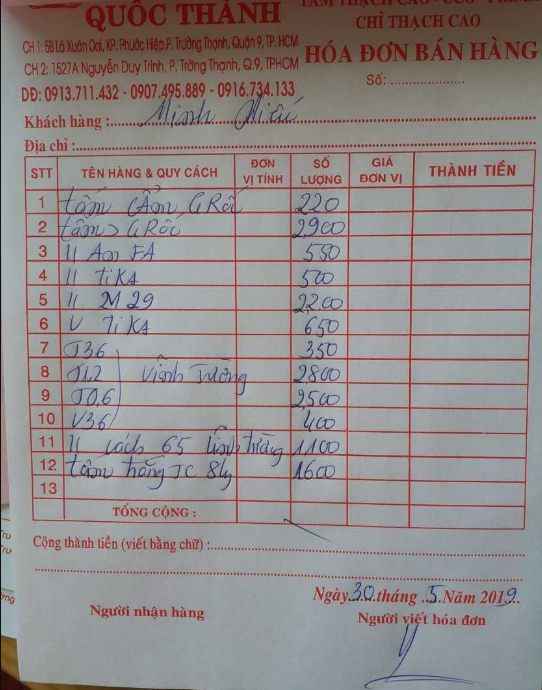 QUỐC THÀNH
TẤM THẠCH CAO
CHỈ THẠCH CAO
CH 1: 5B Lã Xuân Oai, KP. Phước Hiệp,P. Trường Thạnh, Quận 9, TP. HCM
CH 2: 1527A Nguyễn Duy Trinh, P. Trờng Thạnh, Q.9, TPHCM
HÓA ĐƠN BÁN HÀNG
Số: ....................
DĐ: 0913.711.432 - 0907.495.889 - 0916.734.133
Khách hàng : Minh Hiếu
Địa chỉ :
STT TÊN HÀNG & QUY CÁCH ĐƠN VỊ TÍNH SỐ LƯỢNG GIÁ ĐƠN VỊ THÀNH TIỀN
1 tấm 220
2 tấm 2900
3 11 550
4 11 TiKA 500
5 11 M 29 2200
6 V TiKA 650
7 J36 350
8 J1,2 Vĩnh Tường 2800
9 J0,6 2500
10 V36 400
11 11 vách 65 tường 1100
12 tấm trắng JC 8ly 1600
13
TỔNG CỘNG :
Cộng thành tiền (viết bằng chữ) :
Ngày 30 tháng 5 Năm 2019
Người nhận hàng Người viết hóa đơn